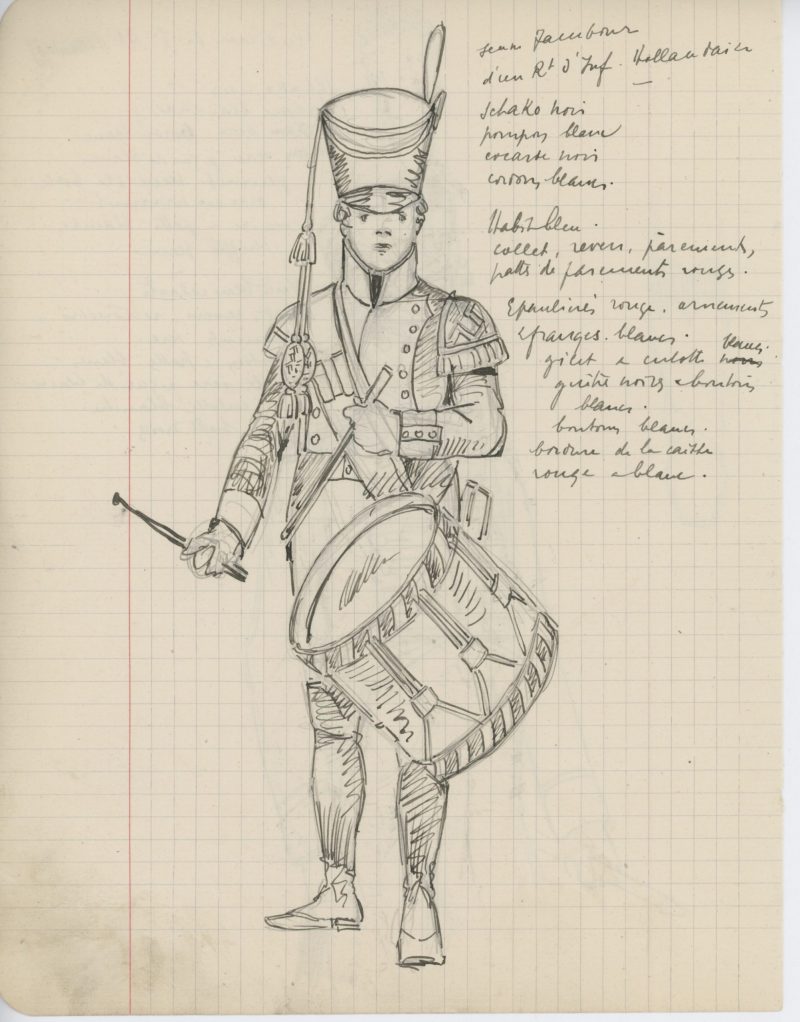 jeune Tambour
d'un Rt d'Inf. Hollandaise
Schako noir
pompon blanc
cocarde noire
cordons blancs.
Habit bleu.
collet, revers, parements,
pattes de parements rouges.
Epaulières rouge. ornements
& franges. blancs.
gilet & culotte blancs.
guêtre noires & boutons
blancs.
boutons blancs.
bordure de la caisse
rouge & blanc.